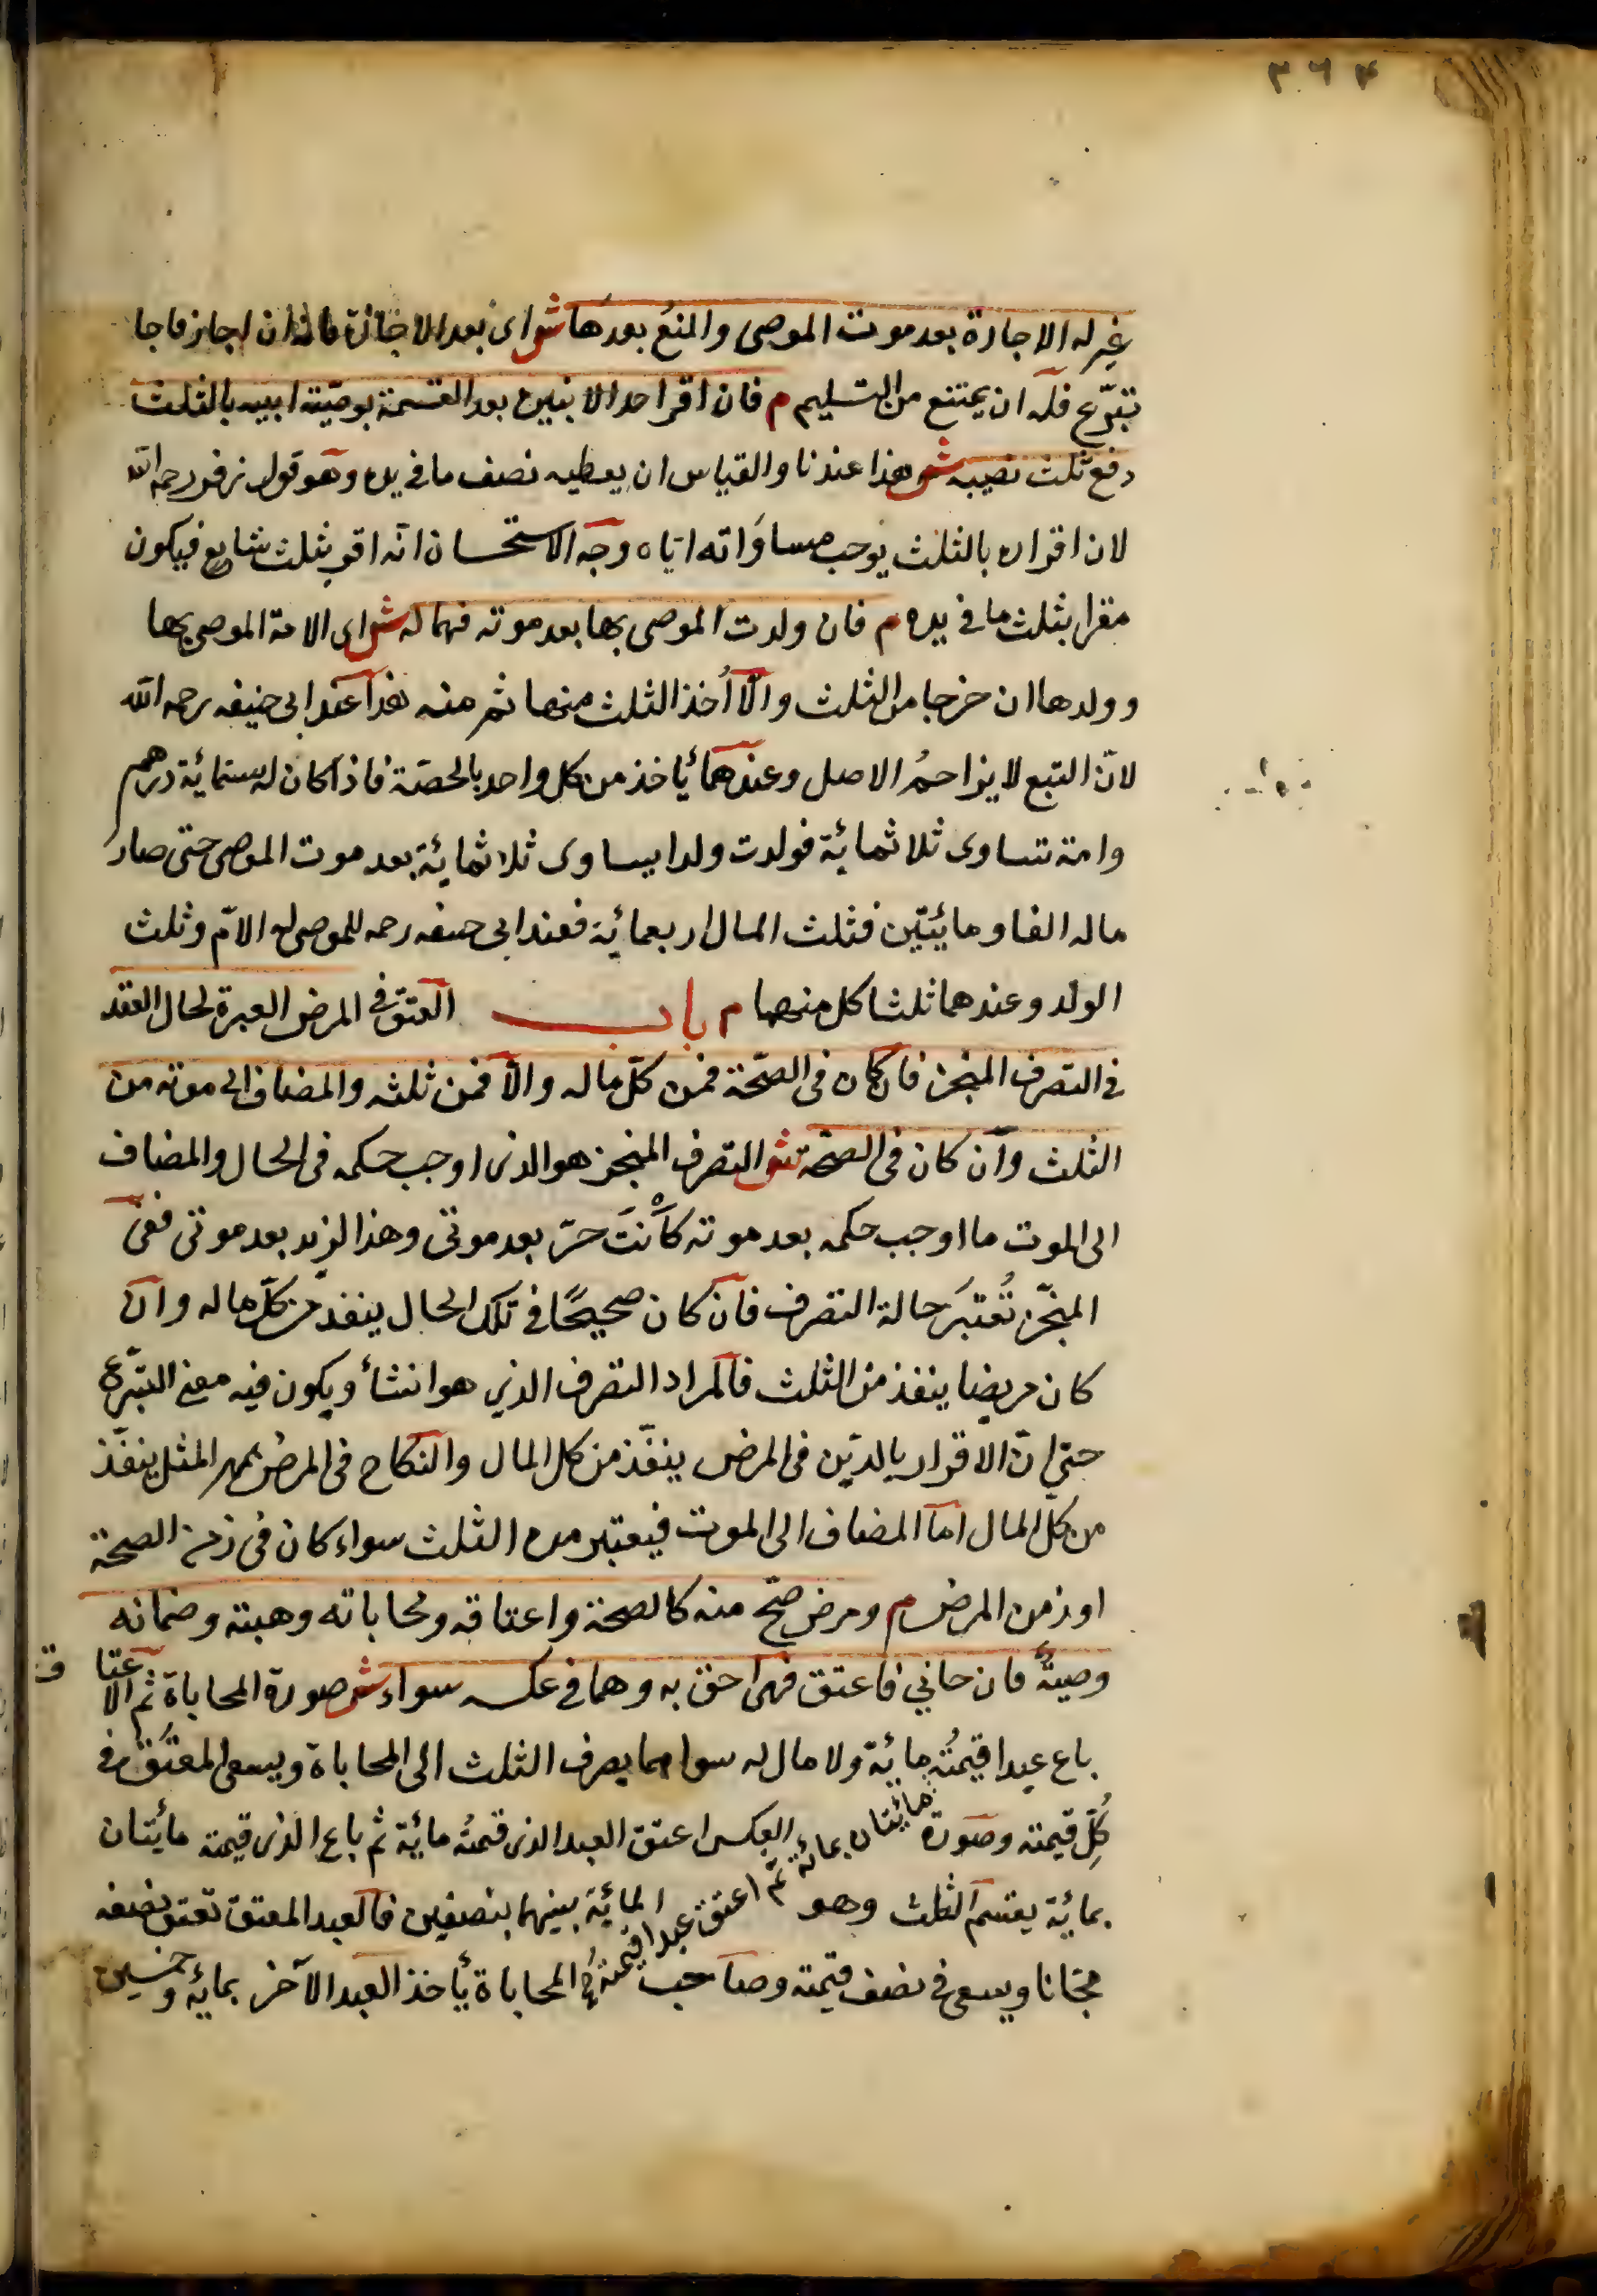 ٣٦٤
غيره الاجازة بعد موت الموصى والمنع بعدها ش اى بعد الاجازة فانه ان اجاز فاجا
تبرّع فله ان يمتنع من التسليم م فان اقر احد الابنين بعد القسمة بوصيّة ابيه بالثلث
دفع ثلث نصيبه ش هذا عندنا والقياس ان يعطيه نصف ما فى يده وهو قول زفر رحمه الله
لان اقراره بالثلث يوجب مساواته اياه وجه الاستحسان انه اقر بثلث شايع فيكون
مقرا بثلث ما فى يده م فان ولدت الموصى بها بعد موته فهما له ش اى الامة الموصى بها
وولدها ان خرجا من الثلث والّا اُخذ الثلث منها ثم منه هذا عند ابى حنيفه رحمه الله
لانّ التبع لا يزاحمُ الاصل وعندهما يأخذ من كل واحد بالحصّة فاذا كان له ستمائة درهم
وامة تساوى ثلاثمائة فولدت ولدا يساوى ثلاثمائة بعد موت الموصى حتى صار
ماله الفا ومائتين فثلث المال اربعمائة فعند ابى حنيفه رحمه للموصى له الامّ وثلث
الولد وعندهما ثلثا كل منهما م باب العتق فى المرض العبرة لحال العقد
فى التصرف المنجز فان كان فى الصّحة فمن كلّ ماله والّا فمن ثلثه والمضاف الى موته من
الثلث وان كان فى الصحّة ش التصرف المنجز هو الذى اوجب حكمه فى الحال والمضاف
الى الموت ما اوجب حكمه بعد موته كأنتَ حرّ بعد موتى وهذا لزيد بعد موتى ففى
المنجّز تُعتبَر حالة التصرف فان كان صحيحًا فى تلك الحال ينفذ من كلّ ماله وان
كان مريضا ينفذ من الثلث فالمراد التصرف الذى هو انشأ ويكون فيه معنى التبرّع
حتى انّ الاقرار بالدّين فى المرض ينفّذ من كل المال والنكاح فى المرض بمهر المثل ينفّذ
من كل المال امّا المضاف الى الموت فيعتبر من الثلث سواء كان فى زمن الصحة
او زمن المرض م ومرض صحّ منه كالصحة واعتاقه ومحاباته وهبته وضمانه
وصيةٌ فان حابى فاعتق فهى احق به وهما فى عكسه سواء ش صورة المحاباة ثم الاعتاق
باع عبدا قيمتُه مائتان بمائة ثم اعتق عبدا قيمتُه مائة ولا مال له سواهما يصرف الثلث الى المحاباة ويسعى المعتَق فى
كُلّ قيمته وصورة العكس اعتق العبد الذى قيمتُه مائة ثم باع الذى قيمته مائتان
بمائة يقسم الثلث وهو المائة بينهما بنصفين فالعبد المعتق تعتق نصفه
مجّانا ويسعى فى نصف قيمته وصاحب المحاباة يأخذ العبد الآخر بمائة وخمسين